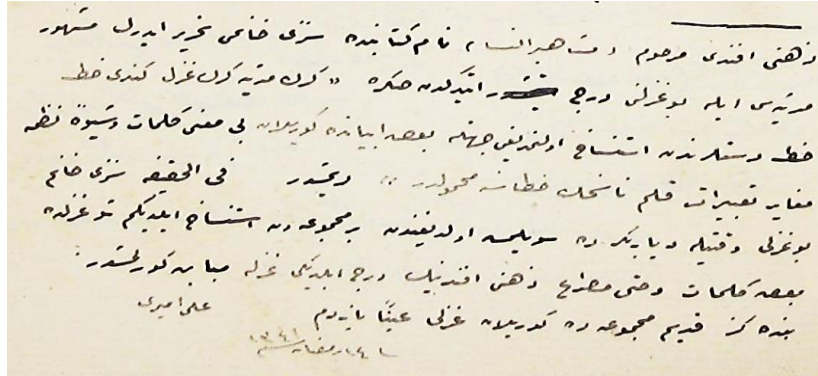 ذهنی افندی مرحوم « مشاهیر النسا » نام کتابنده سرّی خانمی تحریر ایدرك مشهور
مرثیه‌سی ایله بو غزلنی درج ایتدكدن صكره « كرك مرثیه كرك غزل كندی خط
خط دستلرندن استنساخ اولنمدیغی جهتله بعض ابیاتده كوریلان بی معنی كلمات و شیوهٔ نظمه
مغایر تعبیرات قلم ناسخك خطاسنه محمولدر » دیمشدر فی الحقیقه سرّی خانم
بو غزلی وقتیله دیاربكرده سویلمش اولدیغندن بر مجموعه‌دن استنساخ ایلدیكم شو غزلده
بعض كلمات و حتی مصراع ذهنی افندینك درج ایلدیكی غزله مباین كورلمشدر
بنده‌كز قدیم مجموعه‌ده كوریلان غزلی عیناً یازدم علی امیری
رمضان سنه ١٣٤١